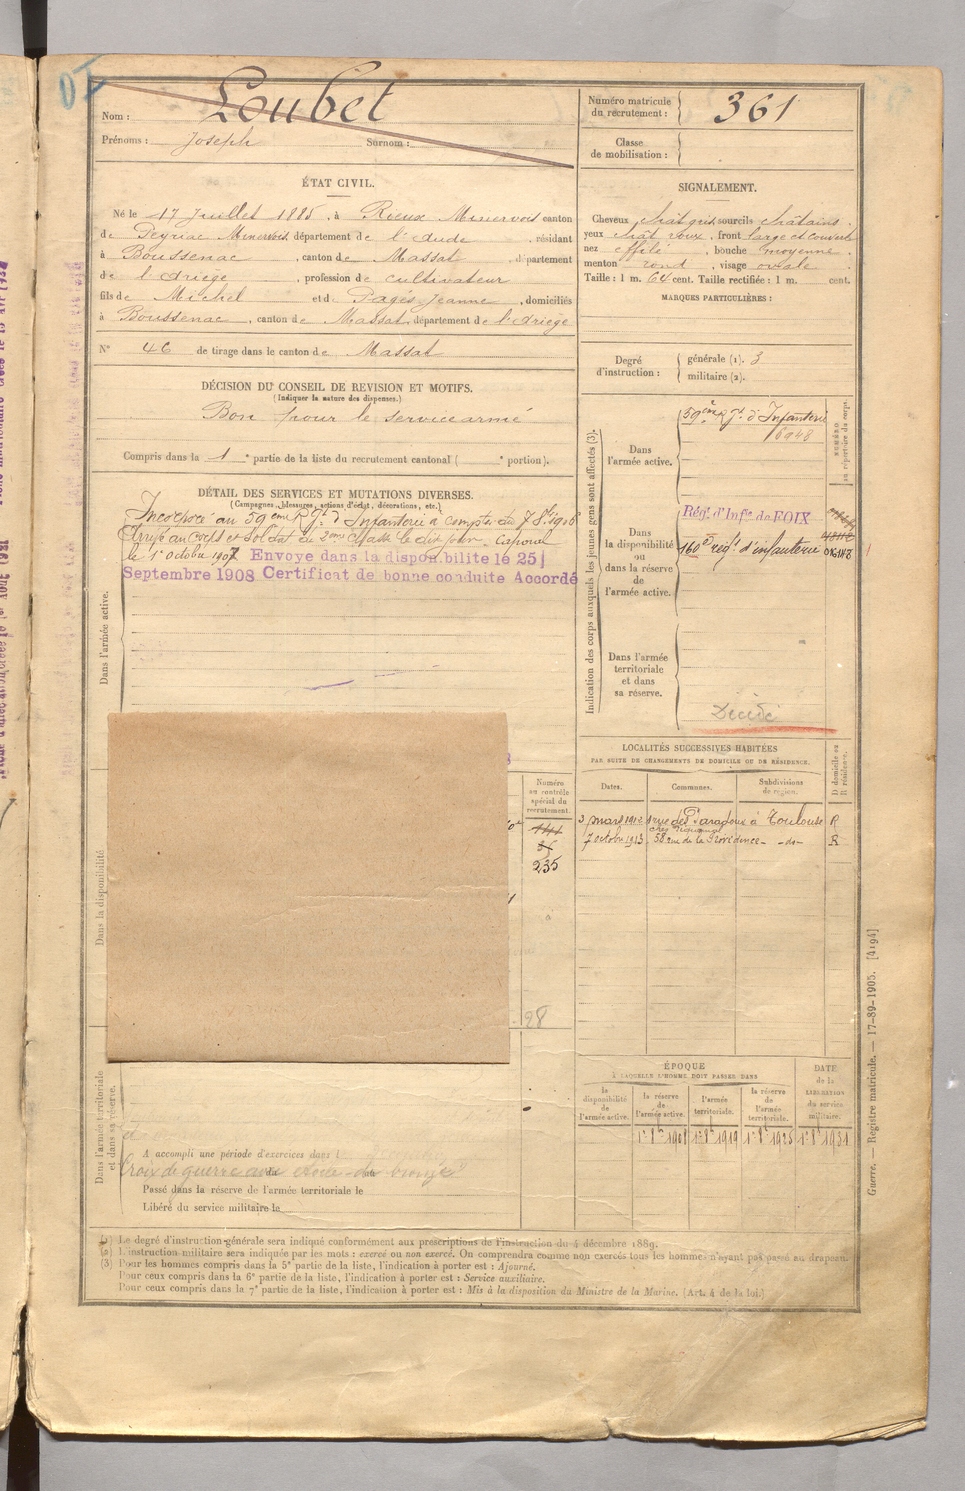 Nom : Loubet
Prénoms : Joseph Surnom :
Numéro matricule du recrutement : 361
Classe de mobilisation :
ÉTAT CIVIL.
Né le 17 Juillet 1885, à Rieux Minervois canton
de Peyriac Minervois, département de l'Aude, résidant
à Boussenac, canton de Massat, département
de l'Ariège, profession de cultivateur
fils de Michel et de Pagès Jeanne, domiciliés
à Boussenac, canton de Massat, département de l'Ariège
N° 46 de tirage dans le canton de Massat
SIGNALEMENT.
Cheveux chât gris sourcils châtains.
yeux chât roux, front large et couvert
nez effilé, bouche moyenne
menton rond, visage ovale
Taille : 1 m. 64 cent. Taille rectifiée : 1 m. cent.
MARQUES PARTICULIÈRES :
Degré d'instruction : générale (1). 3
militaire (2).
DÉCISION DU CONSEIL DE REVISION ET MOTIFS.
(Indiquer la nature des dispenses.)
Bon pour le service armé
Compris dans la 1e partie de la liste du recrutement cantonal ( e portion).
DÉTAIL DES SERVICES ET MUTATIONS DIVERSES.
(Campagnes, blessures, actions d'éclat, décorations, etc.)
Incorporé au 59eme Rgt d'Infanterie à compter du 7 8bre 1906
Arrivé au corps et soldat de 2eme classe le dit jour. Caporal
le 1er octobre 1907 Envoye dans la disponibilite le 25
Septembre 1908 Certificat de bonne conduite Accordé
Dans l'armée active.
Dans la disponibilité
Dans l'armée territoriale et dans sa réserve.
Indication des corps auxquels les jeunes gens sont affectés (3).
NUMÉRO au répertoire du corps.
Dans l'armée active.
59ème Rgt d'Infanterie
6948
Dans la disponibilité ou dans la réserve de l'armée active.
Régt d'Infie de FOIX
160e régt d'infanterie
Dans l'armée territoriale et dans sa réserve.
Décédé
Numéro au contrôle spécial du recrutement.
235
98
LOCALITÉS SUCCESSIVES HABITÉES
PAR SUITE DE CHANGEMENTS DE DOMICILE OU DE RÉSIDENCE.
D domicile ou R résidence.
Dates. Communes. Subdivisions de région.
3 mars 1912 rue des Paradoux à Toulouse R
7 octobre 1913 58 rue de la Providence - do - R
ÉPOQUE
À LAQUELLE L'HOMME DOIT PASSER DANS
DATE de la LIBÉRATION du service militaire.
la disponibilité de l'armée active.
la réserve de l'armée active.
l'armée territoriale.
la réserve de l'armée territoriale.
1er 8bre 1908 1er 8bre 1919 1er 8bre 1925 1er 8bre 1931
A accompli une période d'exercices dans l
Croix de guerre avec étoile de bronze
Passé dans la réserve de l'armée territoriale le
Libéré du service militaire le
(1) Le degré d'instruction générale sera indiqué conformément aux prescriptions de l'instruction du 4 décembre 1889.
(2) L'instruction militaire sera indiquée par les mots : exercé ou non exercé. On comprendra comme non exercés tous les hommes n'ayant pas passé au drapeau.
(3) Pour les hommes compris dans la 5e partie de la liste, l'indication à porter est : Ajourné.
Pour ceux compris dans la 6e partie de la liste, l'indication à porter est : Service auxiliaire.
Pour ceux compris dans la 7e partie de la liste, l'indication à porter est : Mis à la disposition du Ministre de la Marine. (Art. 4 de la loi.)
Guerre. — Registre matricule. — 17-89-1905. [4194]